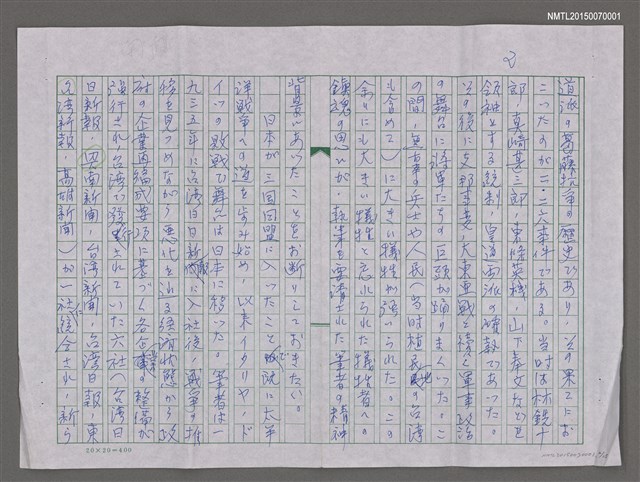 NMTL20150070001
2
道派の葛藤抗争の歴史であり、その果てにお
こったのが二・二六事件である。当時は林銑十
郎、真崎甚三郎、東條英機、山下奉文などを
領袖とする統制、皇道両派の確執であった。
その後に支那事変、大東亜戦と続く軍事政治
の舞台に将軍たちの巨頭が踊りまくった。こ
の間、無辜の兵士や人民（当時植民地の台湾
も含めて）に大きい犠牲が強いられた。この
余りにも大きい犠牲と忘れられた犠牲者への
鎮魂の思いが、執筆を要請された筆者の精神
背景にあったことをお断りしておきたい。
日本が三国同盟に入ったことで既に太平
洋戦争への道を歩み始め、以来イタリヤ、ド
イツの敗戦で舞台は日本に移った。筆者は一
九三五年に台湾日日新報に入社後、戦争の推
移を見つめながら悪化を辿る経済状態から政
府の企業再編成要項に基づく各企業の整備が
強行され台湾で発行されていた六社（台湾日
日新報、興南新聞、台湾新聞、台湾日報、東
台湾新報、高雄新聞）が一社に統合され、新ら
20×20＝400